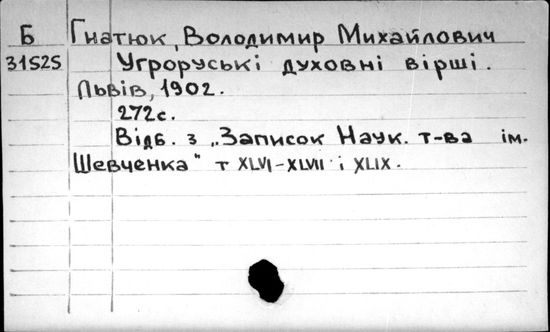 Б Гнатюк, Володимир Михайлович
31525 Угроруські духовні вірші.
Львів, 1902.
272с.
Відб. з „Записок Наук. т-ва ім.
Шевченка" т XLVI-XLVII і XLIX.